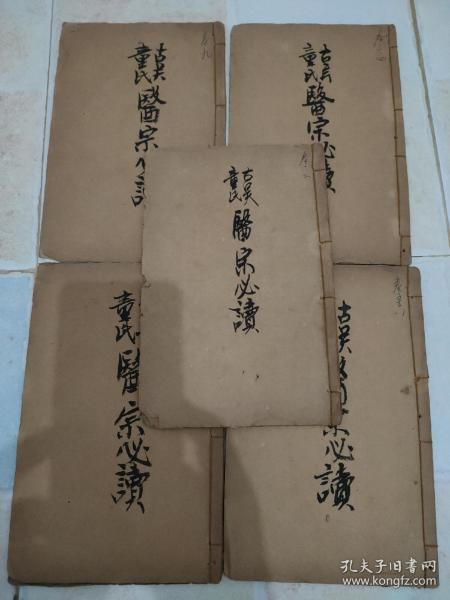 古吴
童氏
醫宗必讀
古吴
童氏
醫宗必讀
古吴
童氏
醫宗必讀
童氏
醫宗必讀
古吴
必讀
孔夫子旧书网
www.kongfz.com